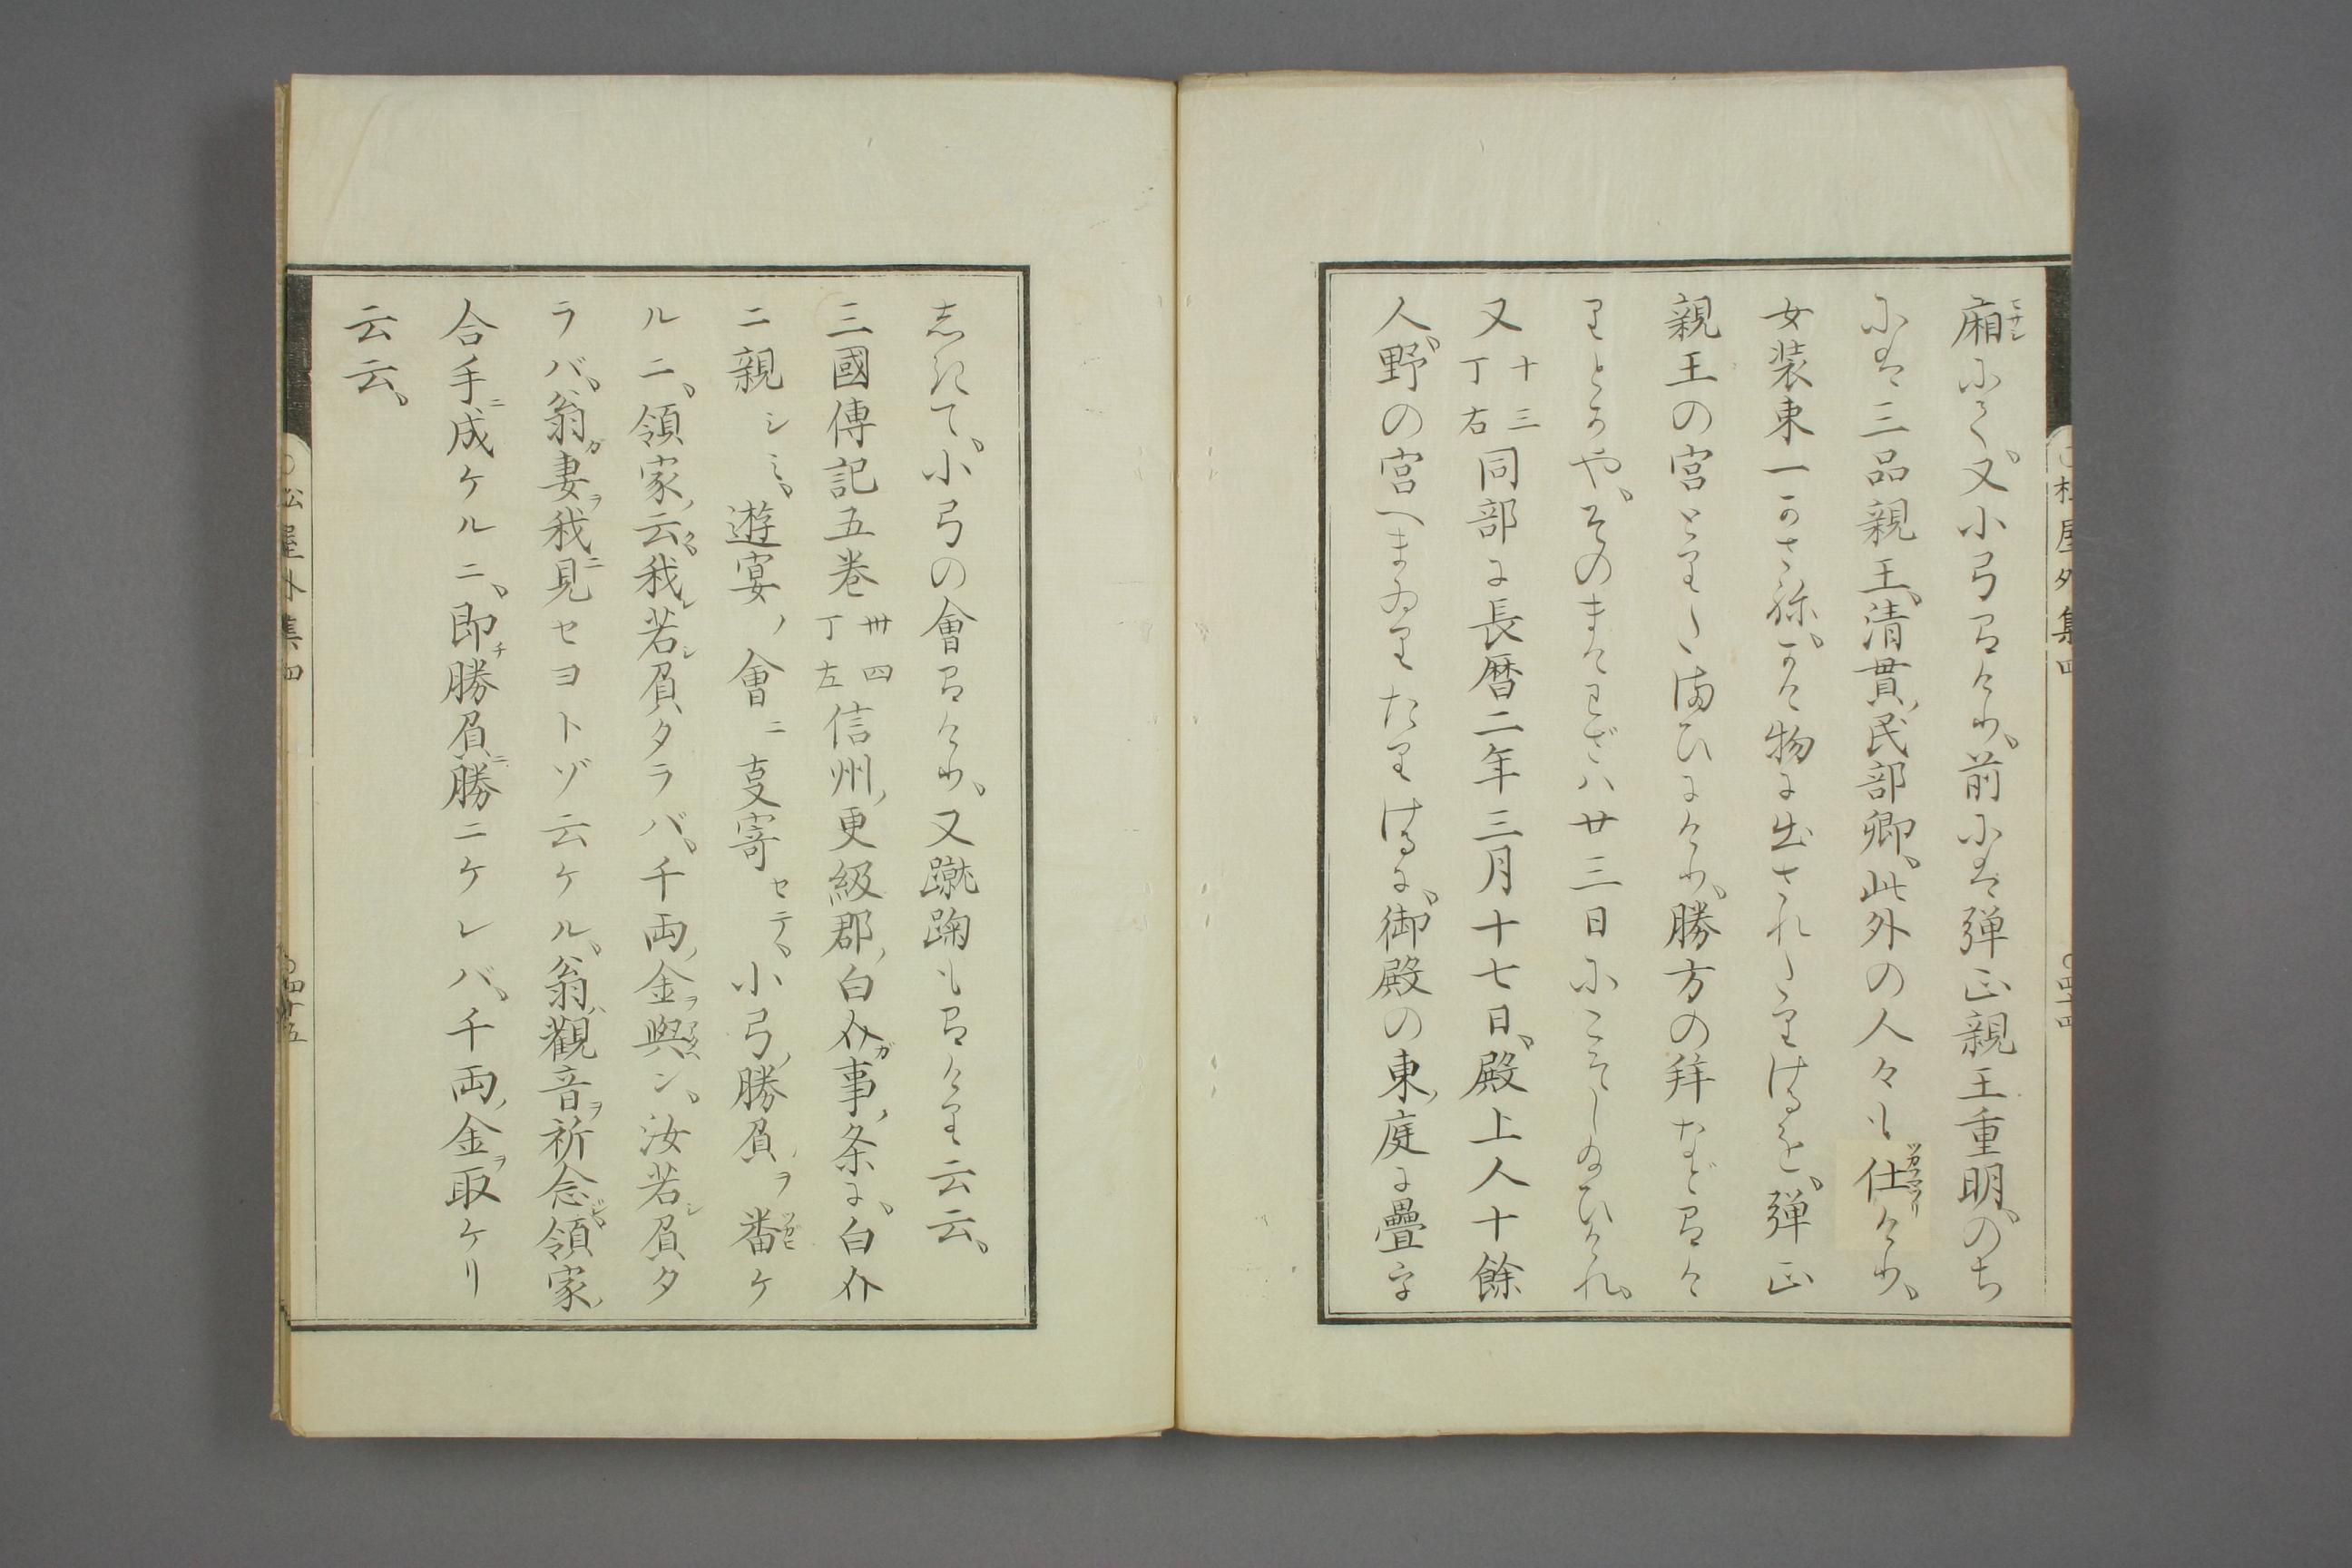 廂にて、又小弓ありけり、前には弾正親王重明、のち
には三品親王、清貫、民部卿、此外の人々も仕けり、
女装束一かさね、かけ物に出されたりけるを、弾正
親王の宮とりたまひにけり、勝方の拜などありけ
りとかや、そのまけわざハ廿三日にこそしゐひけれ、
又十三丁右同部に長暦二年三月十七日、殿上人十餘
人、野の宮へまゐりたりけるに、御殿の東ノ庭に疊字
しきて、小弓の會ありけり、又蹴鞠もありけり云云、
三國傳記五巻卅四丁左信州ノ更級郡ノ白介ガ事ノ条に、白介
ニ親シミ、遊宴ノ會ニ支寄セテ、小弓ノ勝負ヲ番ケ
ルニ、領家ノ云ク我レ若シ負タラバ、千両ノ金ヲ與ヘン、汝若シ負タ
ラバ、翁ガ妻ヲ我ニ見セヨトゾ云ケル、翁ハ觀音ヲ祈念ジ、領家ノ
合手ニ成ケルニ、即チ勝負ニ勝ニケレバ、千両ノ金ヲ取ケリ
云云、
松屋外集四
〇四十五